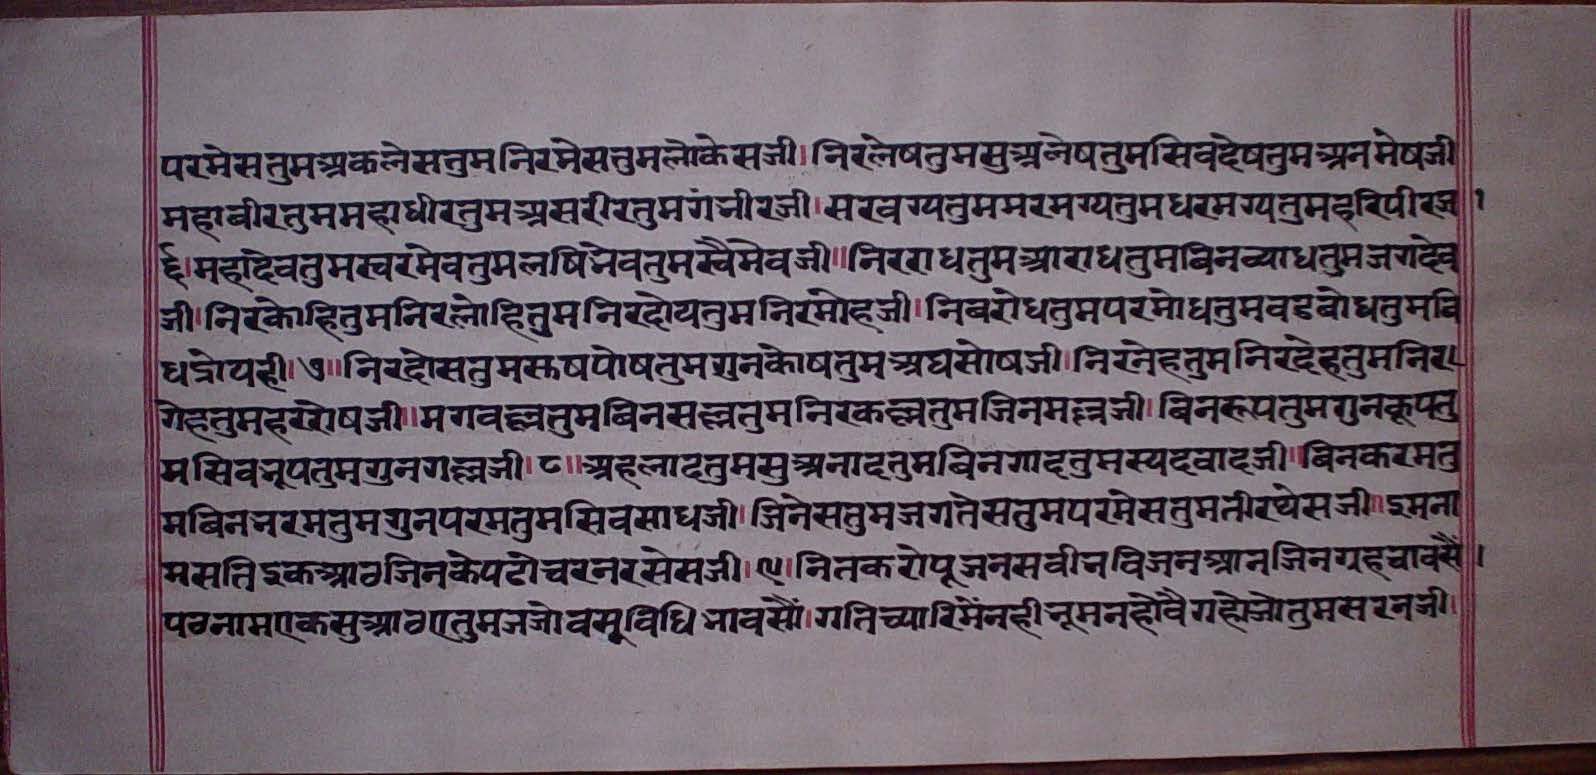 परमेसतुमअकलेसतुमनिरमेसतुमलोकेसजी।निरलेषतुमसुअलेषतुमसिवदेषतुमअनमेषजी
महावीरतुममहाधीरतुमअसरीरतुमगंभीरजी।सरवग्यतुममरमग्यतुमधरमग्यतुमहरिपीरजी।
६।महादेवतुमस्वरमेवतुमलषिभेवतुमस्वैमेवजी॥निरराधतुमआराधतुमबिनव्याधतुमजगदेव
जी।निरकोहितुमनिरलोहितुमनिरदोयतुमनिरमोहजी।निबरोधतुमपरमोधतुमवडबोधतुमबि
धद्रोयही।७॥निरदोसतुमसतषपोषतुमगुनकोषतुमअघसोषजी।निरनेहतुमनिरदेहतुमनिर
गेहतुमहररोषजी॥भगवल्लतुमबिनसल्लतुमनिरकल्लतुमजिनमल्लजी।बिनरूपतुमगुनकूपतु
मसिवभूपतुमगुनगल्लजी।८॥अहलादतुमसुअनादतुमबिनगादतुमस्यदवादजी।बिनकरमतु
मबिनभरमतुमगुनपरमतुमसिवसाधजी।जिनेसतुमजगतेसतुमपरमेसतुमतीरथेसजी॥इमना
मसतिइकआठजिनकेपढोचरनरसेसजी।९।नितकरोपूजनसवीभविजनआनजिनग्रहचावसैं।
पढनामएकसुआठएतुमजजोवसूविधिभावसौं।गतिच्यारिमैंनहीभूमनहोवैगहोजोतुमसरनजी।